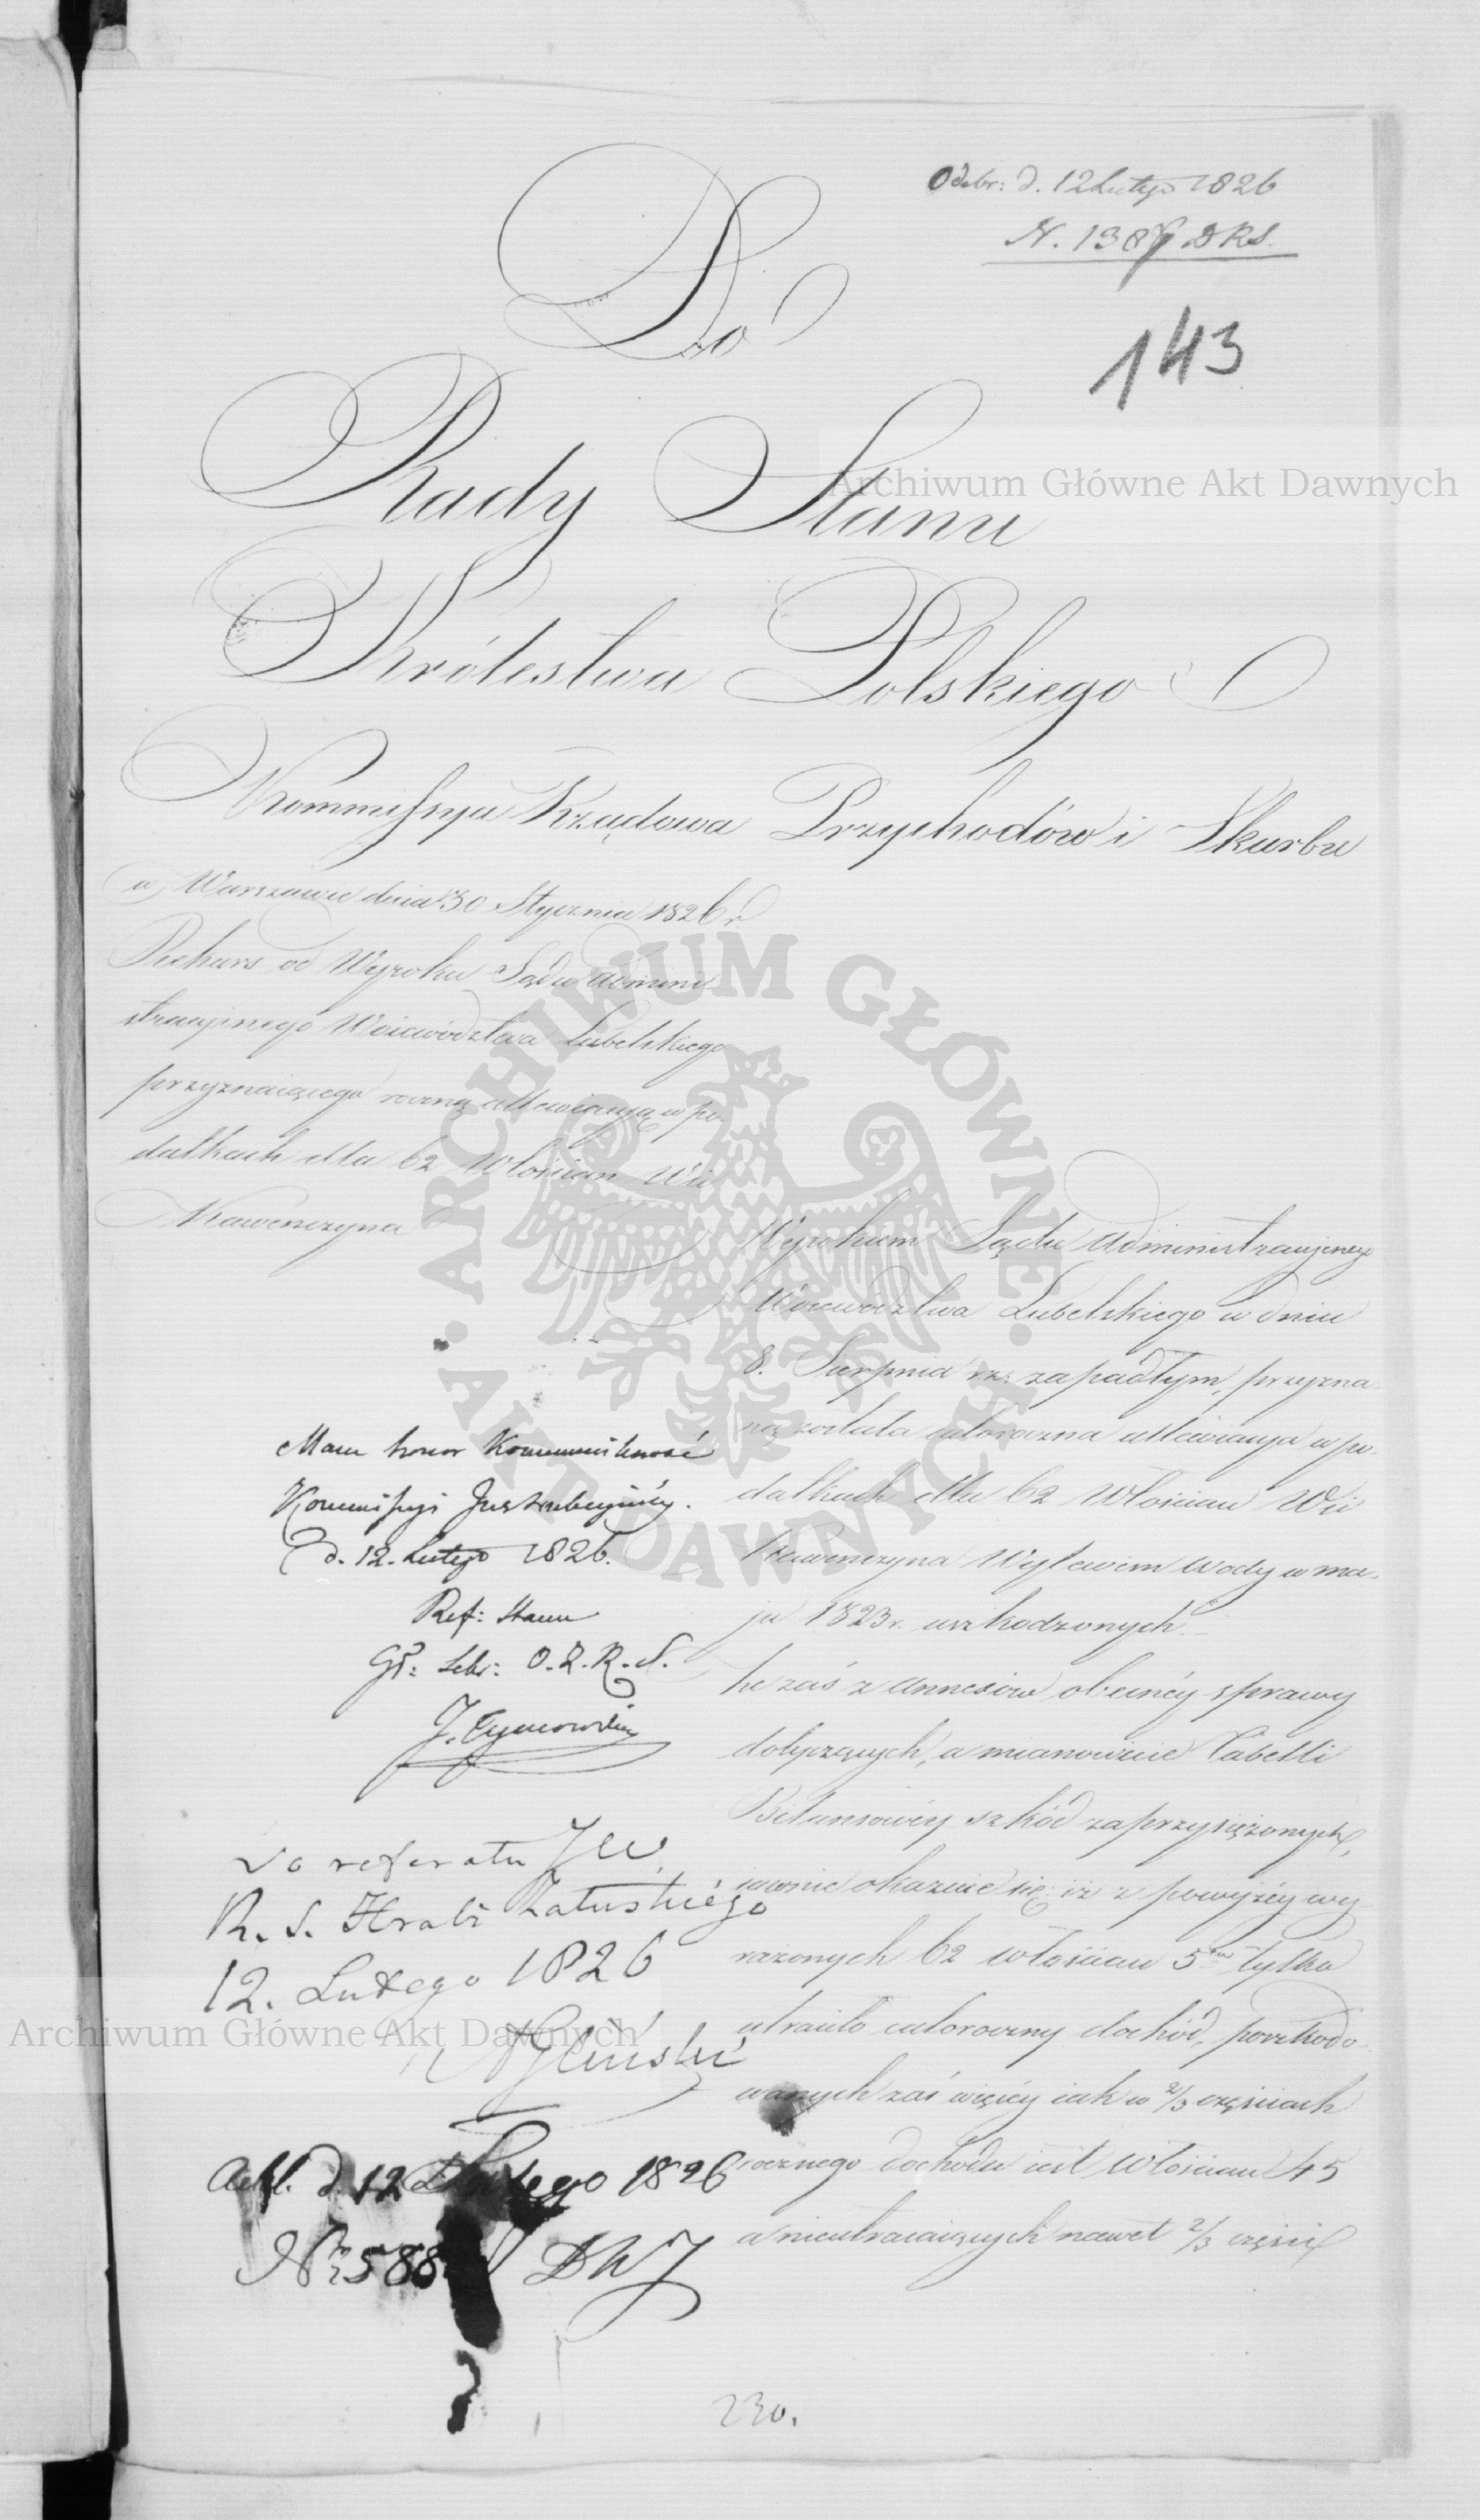 Odebr: d. 12 Lutego 1826
N. 1387 DRS.
143
Do
Rady Stanu
Królestwa Polskiego
Kommissya Rządowa Przychodów i Skarbu
w Warszawie dnia 30 Stycznia 1826 r
Rekurs od Wyroku Sądu Admini
stracyinego Woiewództwa Lubelskiego
przyznaiącego roczną allewiacyą w po
datkach dla 62 Włościan Wsi
Kawenczyna
Wyrokiem Sądu Administracyinego
Woiewództwa Lubelskiego w dniu
8. Sierpnia rz: zapadłym, przyzna
ną została całoroczna allewiacya w po
datkach dla 62 Włościan Wsi
Kawenczyna Wylewem Wody w ma
ju 1823 r. uszkodzonych.
he zaś z Annexów obecnéy sprawy
dotyczących, a mianowicie Tabelli
Bilansowéy szkód zaprzysiężonych,
iawnie okazuie się iż z powyżéy wy
rażonych 62 włościan 5ciu tylko
utraciło całoroczny dochód, poszkodo
wanych zaś więcéy iak w 2/3 częściach
rocznego dochodu iest Włościan 45
a nieutracaiących nawet 2/3 części
Mam honor Kommunikować
Kommissyi Instrukcyinéy.
d. 12. Lutego 1826.
Ref: Stanu
Gł: Sekr: O.Z.R.S.
J. Tymowski
do referatu JW
R. S. Hrabi Załuskiégo
12. Lutego 1826
Gliński
d. 12 Lutego 1826
Nr 588 DKJ
230.
Archiwum Główne Akt Dawnych
Archiwum Główne Akt Dawnych
ARCHIWUM GŁÓWNE AKT DAWNYCH